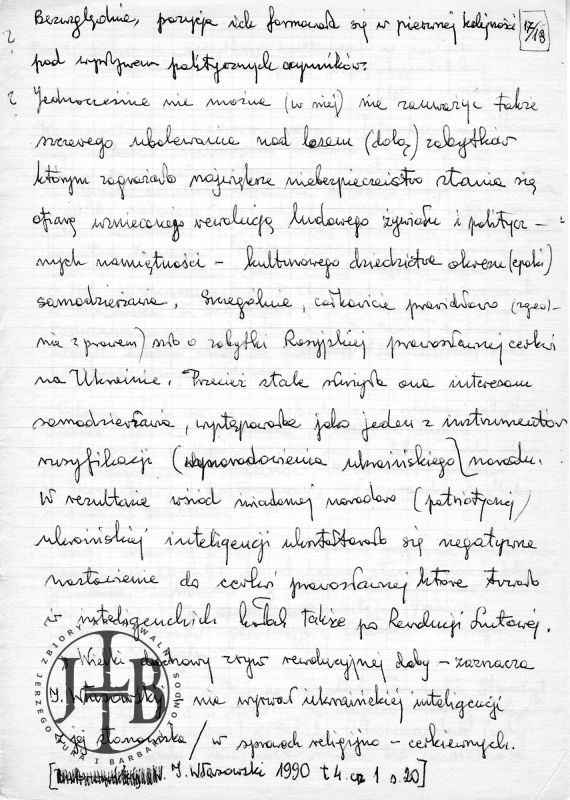 Bezwzględnie, pozycja ich formował się w pierwszej kolejności 17/18
? pod wpływem politycznych czynników.
? Jednocześnie nie można (w niej) nie zauważyć także
szczerego ubolewania nad losem (dolą) zabytków
którym zagrażało największe niebezpieczeństwo stania się
ofiarą wznieconego rewolucją ludowego żywiołu i politycz-
nych namiętności – kulturowego dziedzictwa okresu (epoki)
samodzierżawia. Szczególnie, całkowicie prawidłowo (zgod-
nie z prawem) szło o zabytki Rosyjskiej prawosławnej cerkwi
na Ukrainie. Przecież stale służyła ona interesom
samodzierżawia, występowała jako jeden z instrumentów
rusyfikacji (wynarodowienia ukraińskiego) narodu.
W rezultacie wśród świadomej narodowo (patriotycznej)
ukraińskiej inteligencji ukształtowało się negatywne
nastawienie do cerkwi prawosławnej które trwało
w inteligenckich kołach także po Rewolucji Lutowej.
Wielki duchowy zryw rewolucyjnej doby – zaznacza
I. Własowski – nie wyrwał ukraińskiej inteligencji
z jej stanowiska / w sprawach religijno – cerkiewnych.
[I. Własowski 1990 t 4. cz 1 s. 20]
ZBIORY
JERZEGO JURA I BARBARY
JLB